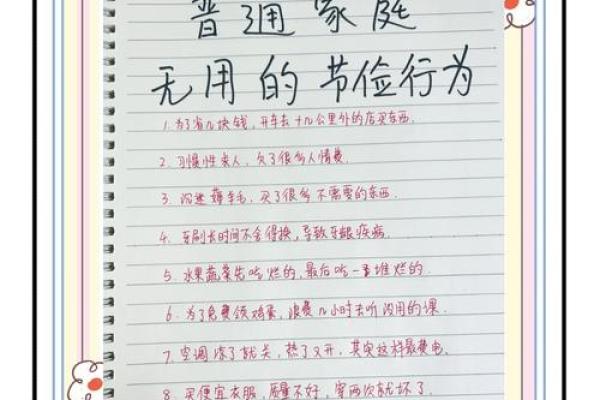 普通家庭
无用的节俭行为
1.为了省几块钱,开车去十几公里外的店买东西.
2.习惯性求人,欠了很多人情债.
3.沉迷薅羊毛,买了很多不需要的东西.
4.牙刷长时间不舍得换,导致牙龈疾病.
5.水果蔬菜先吃烂的,最后吃一堆烂的.
6.为了免费领鸡蛋,浪费几小时去听没用的课.
7.空调冻了就关,热了又开,其实这样最费电.
8.买便宜衣服,质量不好,穿两次就坏了.